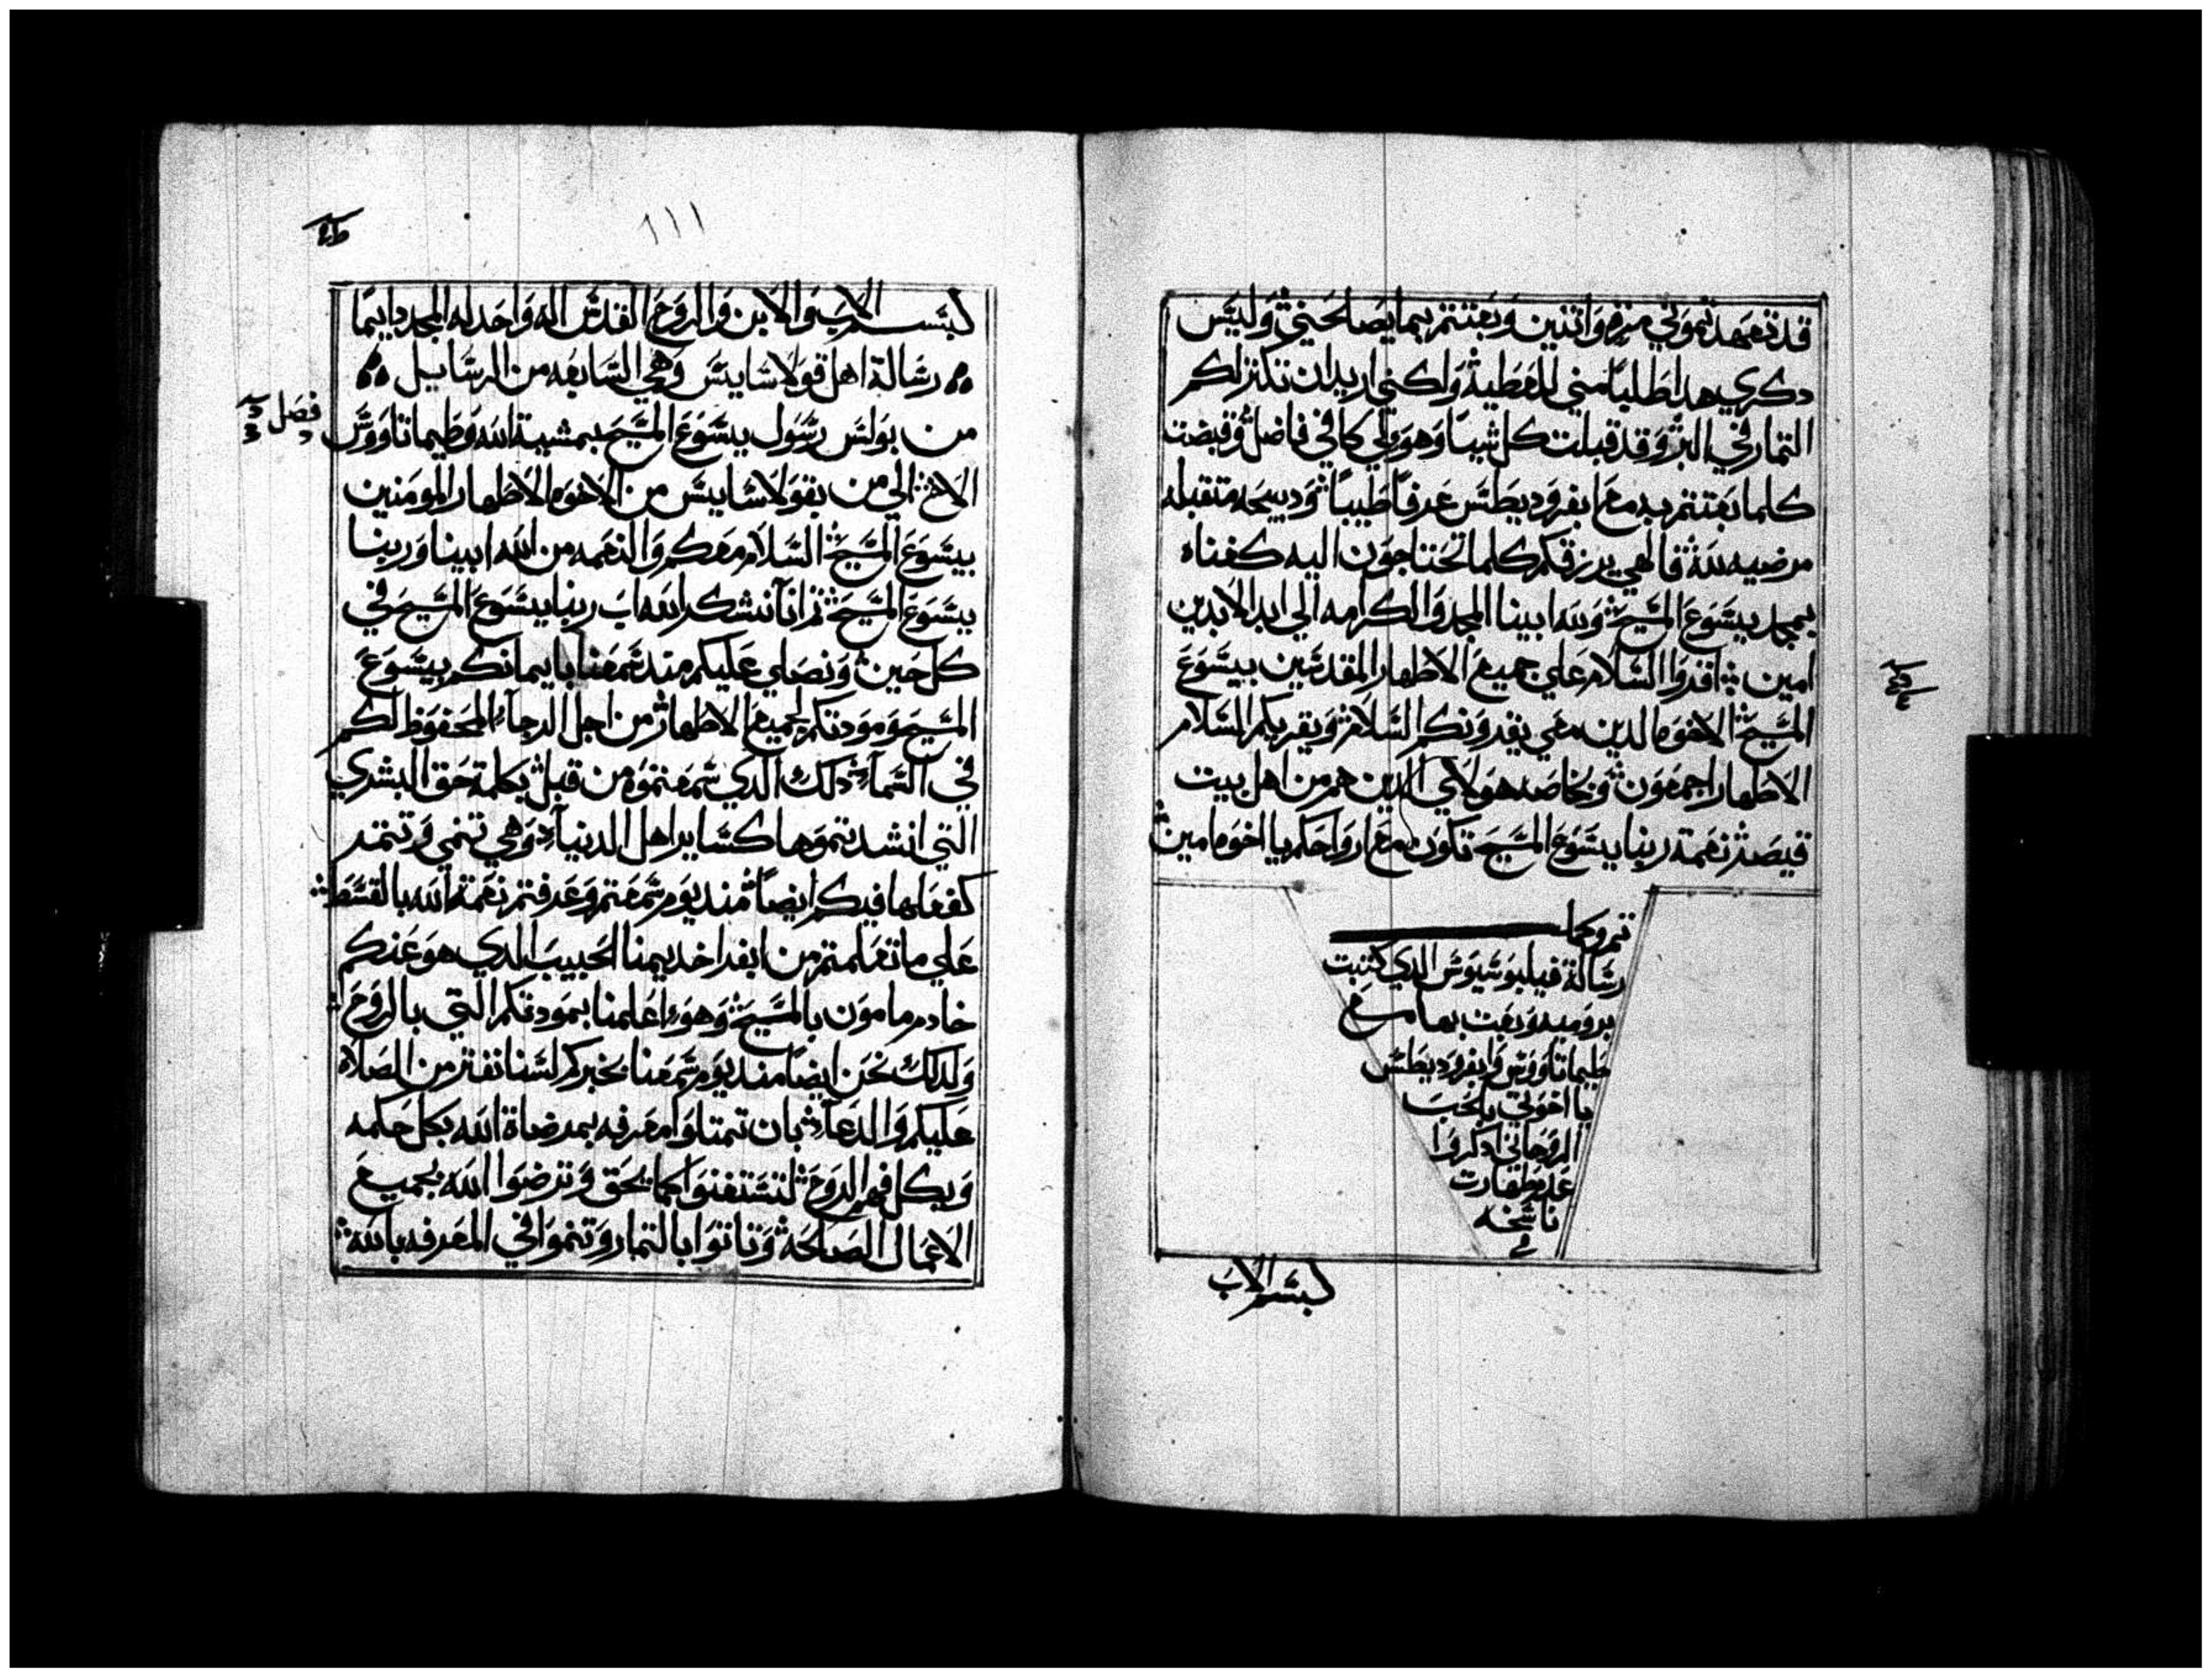 قد تعهدتموني مره واتنين وبعتتم بما يصالحني وليس
دكري هدا طلبا مني للعطيه ولكني اريد ان تكتر لكم
التمار في البر وقد قبلت كل شيا وهو لي كافي فاضل وقبضت
كلما بعتتم به مع ابفروديطس عرفا طيبا ودبيحه متقبله
مرضيه لله فالهي يرزقكم كلما تحتاجون اليه كغناه
بمجد يسوع المسيح ولله ابينا المجد والكرامه الي ابد الابدين
امين اقروا السلام علي جميع الاطهار المقدسين بيسوع
المسيح الاخوه الدين معي يقرونكم السلام ويقريكم السلام
الاطهار اجمعون وبخاصه هولاي الدين هم من اهل بيت
قيصر نعمة ربنا يسوع المسيح تكون مع ارواحكم يا اخوه امين
تم وكمل
رسالة فيلبوسيوس الدي كتبت
بروميه وبعت بها مع
طيماتاووس وابفروديطس
يا اخوتي بالحب
الروحاني ادكروا
ناسخه
بسم الاب
١١١
بسم الاب والابن والروح القدس اله واحد له المجد دايما
رسالة اهل قولاسايس وهي السابعه من الرسايل
فصل
من بولس رسول يسوع المسيح بمشية الله وطيماتاووس
الاخ الي من بقولاسايس من الاخوه الاطهار المومنين
بيسوع المسيح السلام معكم والنعمه من الله ابينا وربنا
يسوع المسيح تم انا نشكر الله اب ربنا يسوع المسيح في
كل حين ونصلي عليكم مند سمعنا بايمانكم بيسوع
المسيح ومودتكم لجميع الاطهار من اجل الرجآ المحفوظ لكم
في السمآ دلك الدي سمعتموه من قبل بكلمة حق البشري
التي انشرتموها كساير اهل الدنيا وهي تنمي وتتمر
كفعلها فيكم ايضا مند يوم سمعتم وعرفتم نعمة الله بالقسط
علي ما تعلمتم من ابفرا خديمنا الحبيب الدي هو عنكم
خادم مامون بالمسيح وهو اعلمنا بمودتكم التي بالروح
ولدلك نحن ايضا مند يوم سمعنا بخبركم لسنا نفتر من الصلاه
عليكم والدعآ بان تمتلوا معرفه بمرضاة الله بكل حكمه
وبكل فهم الروح لتستغنوا كما يحق وترضوا الله بجميع
الاعمال الصالحه وتاتوا بالتمار وتنموا في المعرفه بالله